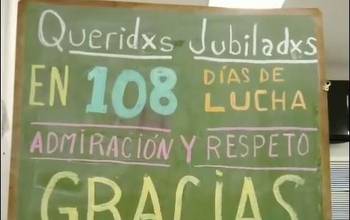 Queridxs Jubiladxs
EN 108 DÍAS DE LUCHA
ADMIRACIÓN Y RESPETO
GRACIAS